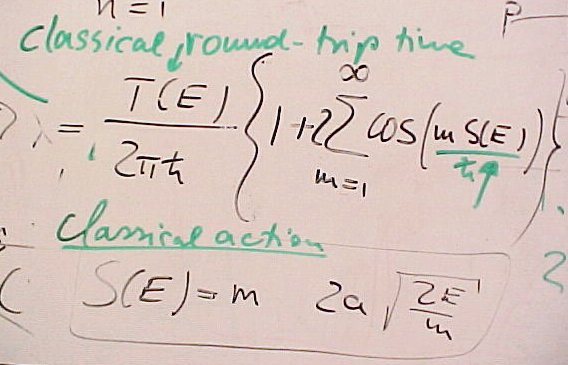 n = 1
P
classical round-trip time
= T(E) / 2πħ { 1 + 2 ∞ Σ m=1 cos ( m S(E) / ħ ) }
classical action
S(E) = m 2a √ 2E / m
2